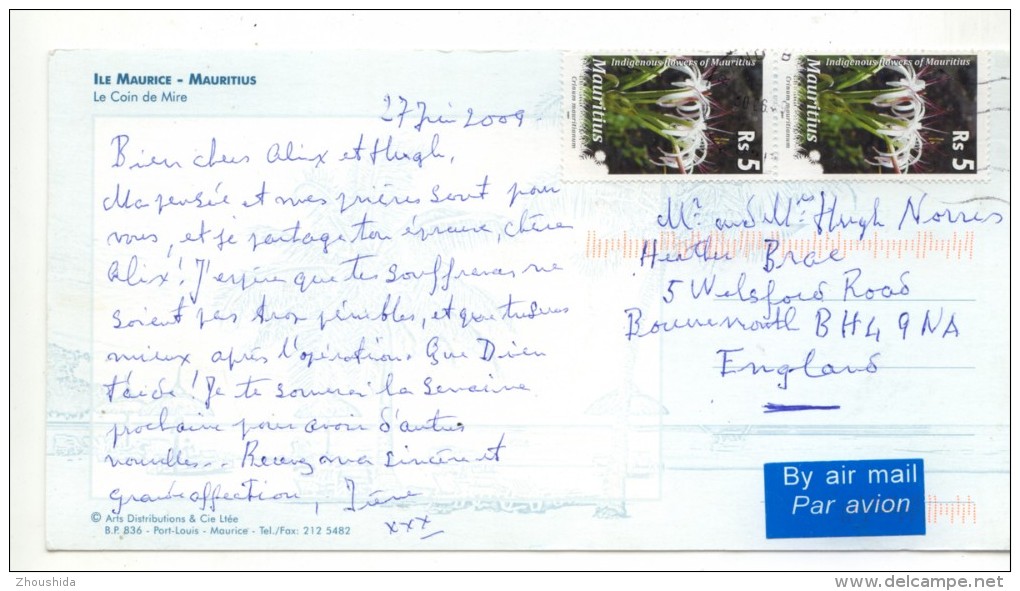 ILE MAURICE - MAURITIUS
Le Coin de Mire
27 Juin 2009
Bien chers Alix et Hugh,
Ma pensée et mes prières sont pour
vous, et je partage ton épreuve, chère
Alix! J'espère que tes souffrances ne
soient pas trop pénibles, et que tu seras
mieux après l'opération. Que Dieu
t'aide! Je te sonnerai la semaine
prochaine pour avoir d'autres
nouvelles... Recevez ma sincère et
grande affection,
xxx
© Arts Distributions & Cie Ltée
B.P. 836 - Port-Louis - Maurice - Tel./Fax: 212 5482
Indigenous flowers of Mauritius
Mauritius
Crinum mauritianum
Rs 5
Indigenous flowers of Mauritius
Mauritius
Crinum mauritianum
Rs 5
Mr and Mrs Hugh Norris
Heather Brae
5 Welsford Road
Bournemouth BH4 9NA
England
By air mail
Par avion
Zhoushida
www.delcampe.net